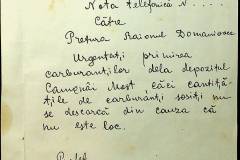 Nota telefonică N.....
Către
Pretura Raionul Domaniovca
Urgentați primirea
carburanților dela depozitul
Câmpul Mest căci cantită-
țile de carburanți sosiți nu-
se descarcă din cauza că
nu este loc.